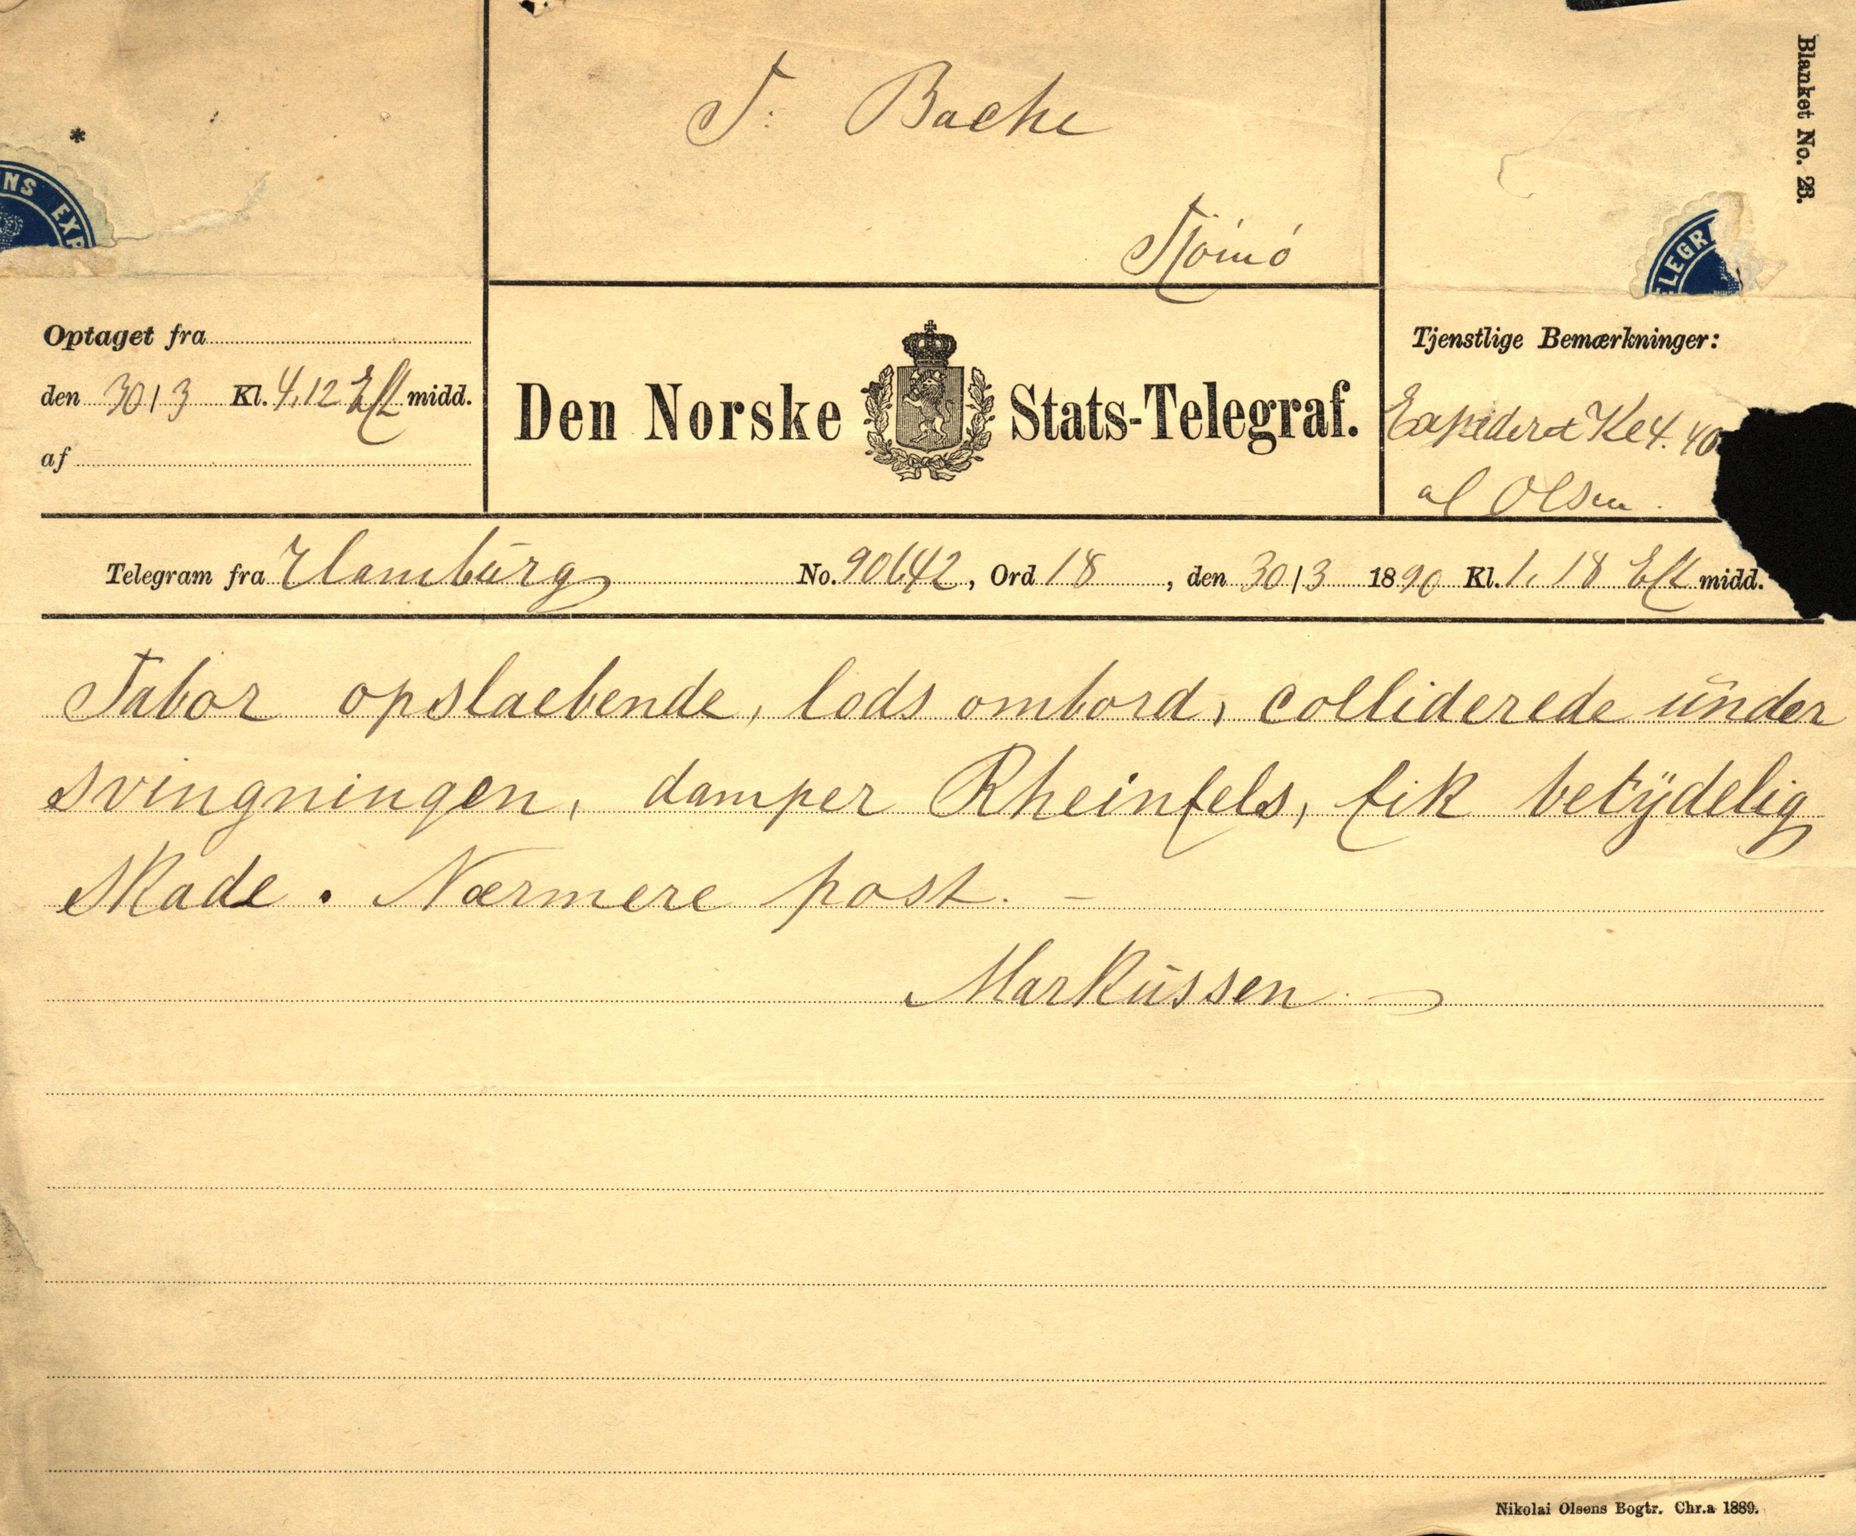 Blanket No. 23.
*
T. Bache
Tjömö
NS EXP
ELEGRA
Optaget fra
den 30/3 Kl. 4,12 Eft midd.
af
Den Norske Stats-Telegraf.
Tjenstlige Bemærkninger:
Expederet Kl 4.40
af Olsen.
Telegram fra Hamburg No. 90642, Ord 18, den 30/3 1890 Kl. 1,18 Eft midd.
Tabor opslaebende, lods ombord, colliderede under
svingningen, damper Rheinfels, fik betydelig
skade. Nærmere post. –
Markussen.
Nikolai Olsens Bogtr. Chr.a 1889.